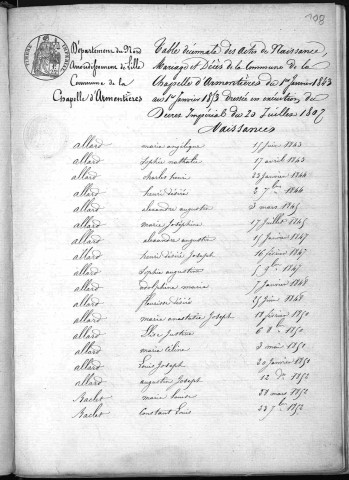 108
Département du Nord
Arrondissement de Lille
Commune de la
Chapelle d'Armentières
Table décennale des Actes de Naissance,
Mariage et Décès de la Commune de la
Chapelle d'Armentières du 1er Janvier 1843
au 1er Janvier 1853 dressée en exécution du
Décret Impérial du 20 Juillet 1807
Naissances
allard marie angélique 15 juin 1843
allard Sophie nathalie 17 avril 1843
allard charles henri 23 janvier 1844
allard henri désiré 2 7bre 1844
allard alexandre augustin 3 mars 1845
allard marie Joséphine 17 juillet 1845
allard alexandre augustin 15 Janvier 1847
allard henri désiré Joseph 16 février 1847
allard Sophie augustine 5 9bre 1847
allard adolphine maria 7 Janvier 1848
allard fleurisse désiré 25 juin 1848
allard marie anastasie Joseph 18 février 1850
allard Elise Justine 6 8bre 1850
allard marie Céline 3 mai 1850
allard Louis Joseph 20 Janvier 1850
allard augustin Joseph 12 Xbre 1852
Baclet marie Louise 28 mars 1852
Baclet Constant Louis 23 7bre 1852